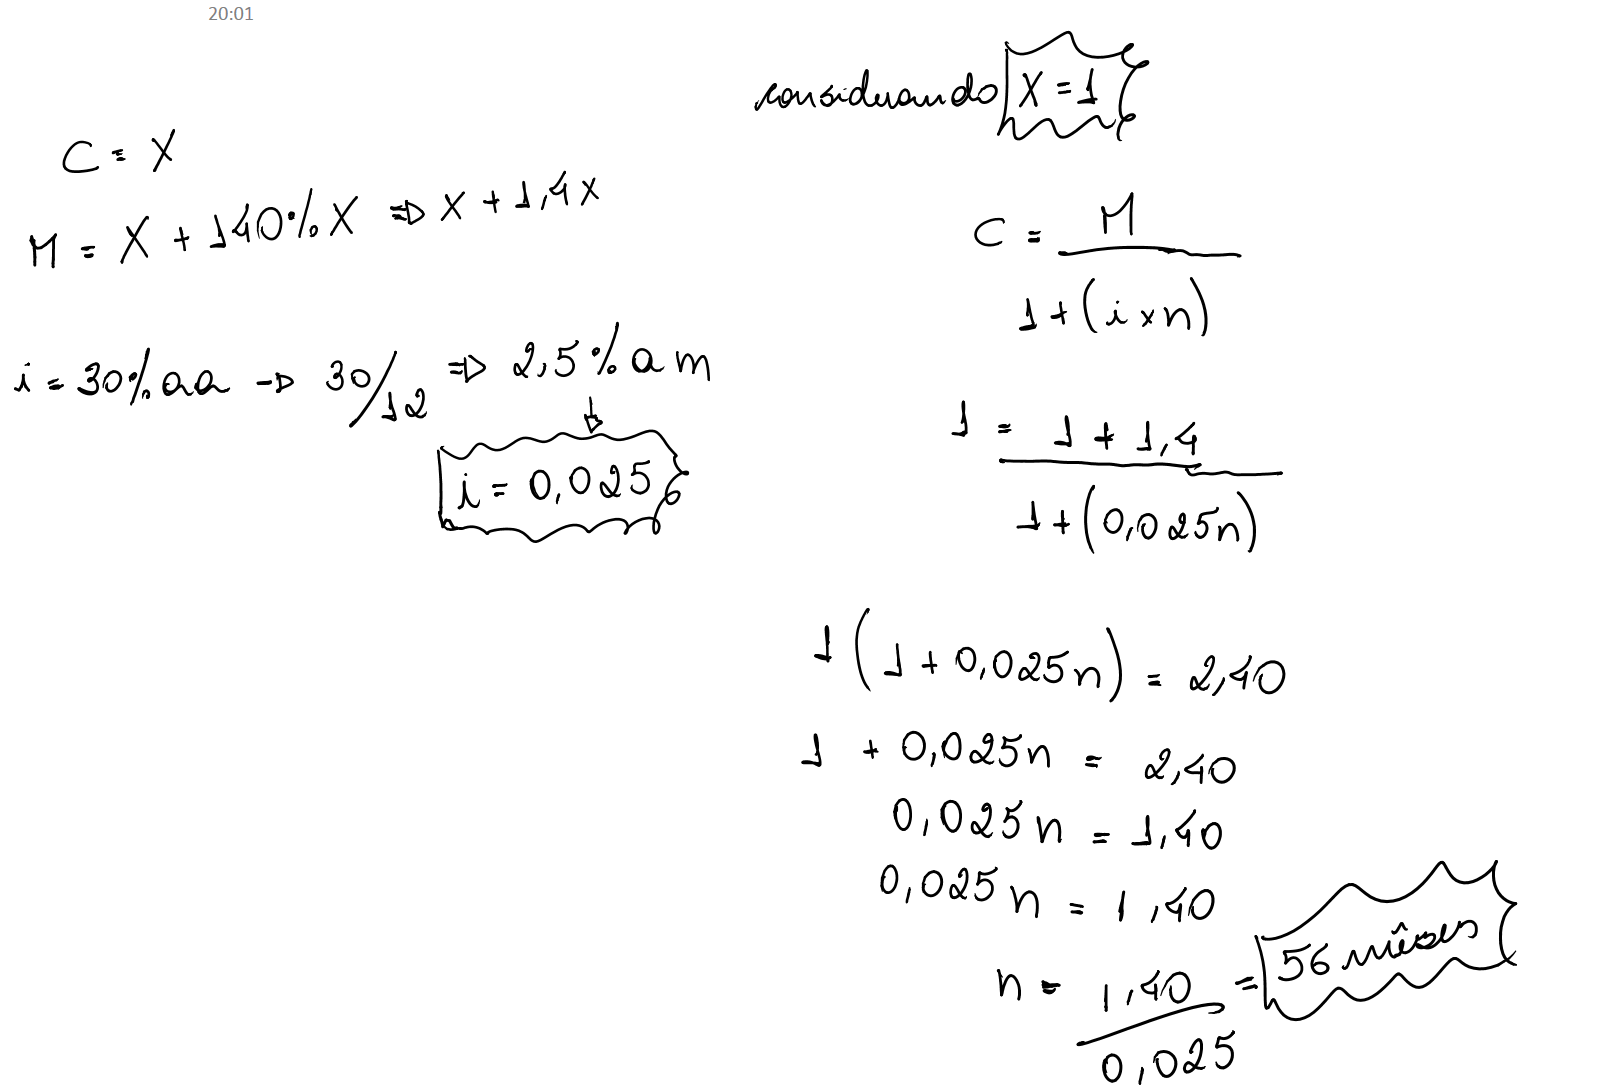 20:01
C = X
M = X + 140% X ⇒ X + 1,4x
i = 30% aa → 30/12 ⇒ 2,5% a m
↓
i = 0,025
considerando X = 1
C = M
1 + (i x n)
1 = 1 + 1,4
1 + (0,025n)
1 (1 + 0,025n) = 2,40
1 + 0,025n = 2,40
0,025n = 1,40
0,025 n = 1,40
n = 1,40 = 56 mêses
0,025